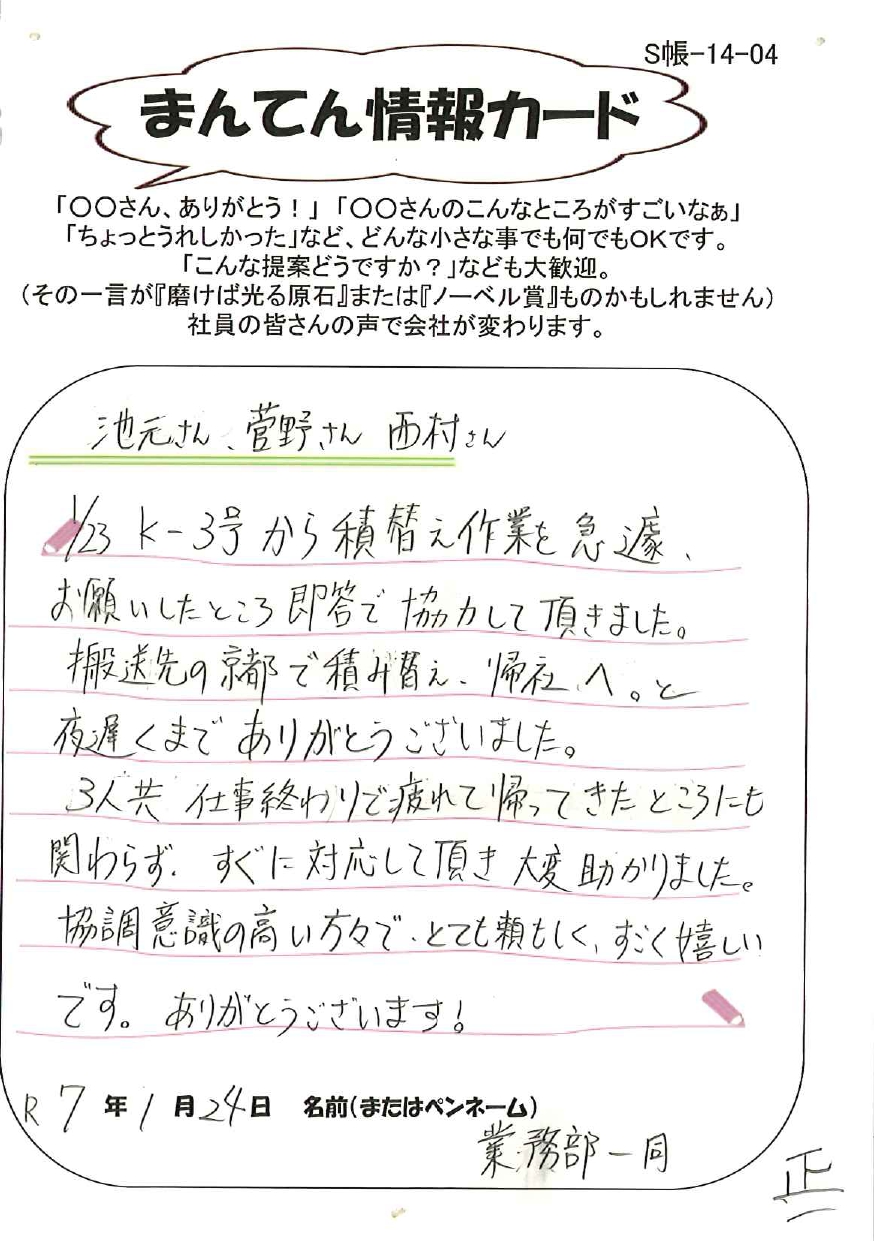 S帳-14-04
まんてん情報カード
「〇〇さん、ありがとう！」「〇〇さんのこんなところがすごいなぁ」
「ちょっとうれしかった」など、どんな小さな事でも何でもOKです。
「こんな提案どうですか？」なども大歓迎。
（その一言が『磨けば光る原石』または『ノーベル賞』ものかもしれません）
社員の皆さんの声で会社が変わります。
池元さん、菅野さん 西村さん
1/23 K-3号から積替え作業を急遽、
お願いしたところ即答で協力して頂きました。
搬送先の京都で積み替え、帰社へ。と
夜遅くまでありがとうございました。
3人共 仕事終わりで疲れて帰ってきたところにも
関わらず、すぐに対応して頂き大変助かりました。
協調意識の高い方々で、とても頼もしく、すごく嬉しい
です。ありがとうございます！
R7年1月24日 名前（またはペンネーム）
業務部一同
正